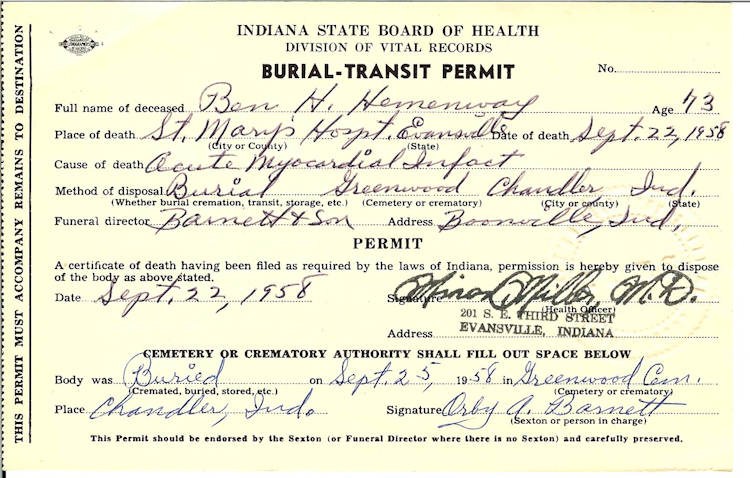 INDIANA STATE BOARD OF HEALTH
DIVISION OF VITAL RECORDS
BURIAL-TRANSIT PERMIT
No.
Full name of deceased Ben H. Hemenway Age 73
Place of death St. Mary's Hospt. Evansville Date of death Sept. 22, 1958
(City or County) (State)
Cause of death Acute Myocardial Infact
Method of disposal Burial Greenwood Chandler Ind.
(Whether burial cremation, transit, storage, etc.) (Cemetery or crematory) (City or county) (State)
Funeral director Barnett & Son Address Boonville, Ind.
PERMIT
A certificate of death having been filed as required by the laws of Indiana, permission is hereby given to dispose
of the body as above stated.
Date Sept. 22, 1958 Signature Minor Miller, M.D.
(Health Officer)
201 S. E. THIRD STREET
Address EVANSVILLE, INDIANA
CEMETERY OR CREMATORY AUTHORITY SHALL FILL OUT SPACE BELOW
Body was Buried on Sept. 25, 1958 in Greenwood Cem.
(Cremated, buried, stored, etc.) (Cemetery or crematory)
Place Chandler, Ind. Signature Orby A. Barnett
(Sexton or person in charge)
This Permit should be endorsed by the Sexton (or Funeral Director where there is no Sexton) and carefully preserved.
THIS PERMIT MUST ACCOMPANY REMAINS TO DESTINATION